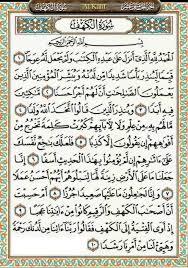 Al-Kahf
سُورَةُ الكَهْفِ
بِسْمِ اللَّهِ الرَّحْمَٰنِ الرَّحِيمِ
ٱلْحَمْدُ لِلَّهِ ٱلَّذِىٓ أَنزَلَ عَلَىٰ عَبْدِهِ ٱلْكِتَٰبَ وَلَمْ يَجْعَل لَّهُۥ عِوَجَا ١
قَيِّمًا لِّيُنذِرَ بَأْسًا شَدِيدًا مِّن لَّدُنْهُ وَيُبَشِّرَ ٱلْمُؤْمِنِينَ ٱلَّذِينَ
يَعْمَلُونَ ٱلصَّٰلِحَٰتِ أَنَّ لَهُمْ أَجْرًا حَسَنًا ٢ مَّٰكِثِينَ
فِيهِ أَبَدًا ٣ وَيُنذِرَ ٱلَّذِينَ قَالُوا۟ ٱتَّخَذَ ٱللَّهُ وَلَدًا ٤
مَّا لَهُم بِهِۦ مِنْ عِلْمٍ وَلَا لِءَابَآئِهِمْ كَبُرَتْ كَلِمَةً تَخْرُجُ مِنْ
أَفْوَٰهِهِمْ إِن يَقُولُونَ إِلَّا كَذِبًا ٥ فَلَعَلَّكَ بَٰخِعٌ نَّفْسَكَ
عَلَىٰٓ ءَاثَٰرِهِمْ إِن لَّمْ يُؤْمِنُوا۟ بِهَٰذَا ٱلْحَدِيثِ أَسَفًا ٦ إِنَّا
جَعَلْنَا مَا عَلَى ٱلْأَرْضِ زِينَةً لَّهَا لِنَبْلُوَهُمْ أَيُّهُمْ أَحْسَنُ عَمَلًا ٧
وَإِنَّا لَجَٰعِلُونَ مَا عَلَيْهَا صَعِيدًا جُرُزًا ٨ أَمْ حَسِبْتَ
أَنَّ أَصْحَٰبَ ٱلْكَهْفِ وَٱلرَّقِيمِ كَانُوا۟ مِنْ ءَايَٰتِنَا عَجَبًا ٩
إِذْ أَوَى ٱلْفِتْيَةُ إِلَى ٱلْكَهْفِ فَقَالُوا۟ رَبَّنَآ ءَاتِنَا مِن لَّدُنكَ رَحْمَةً
وَهَيِّئْ لَنَا مِنْ أَمْرِنَا رَشَدًا ١٠